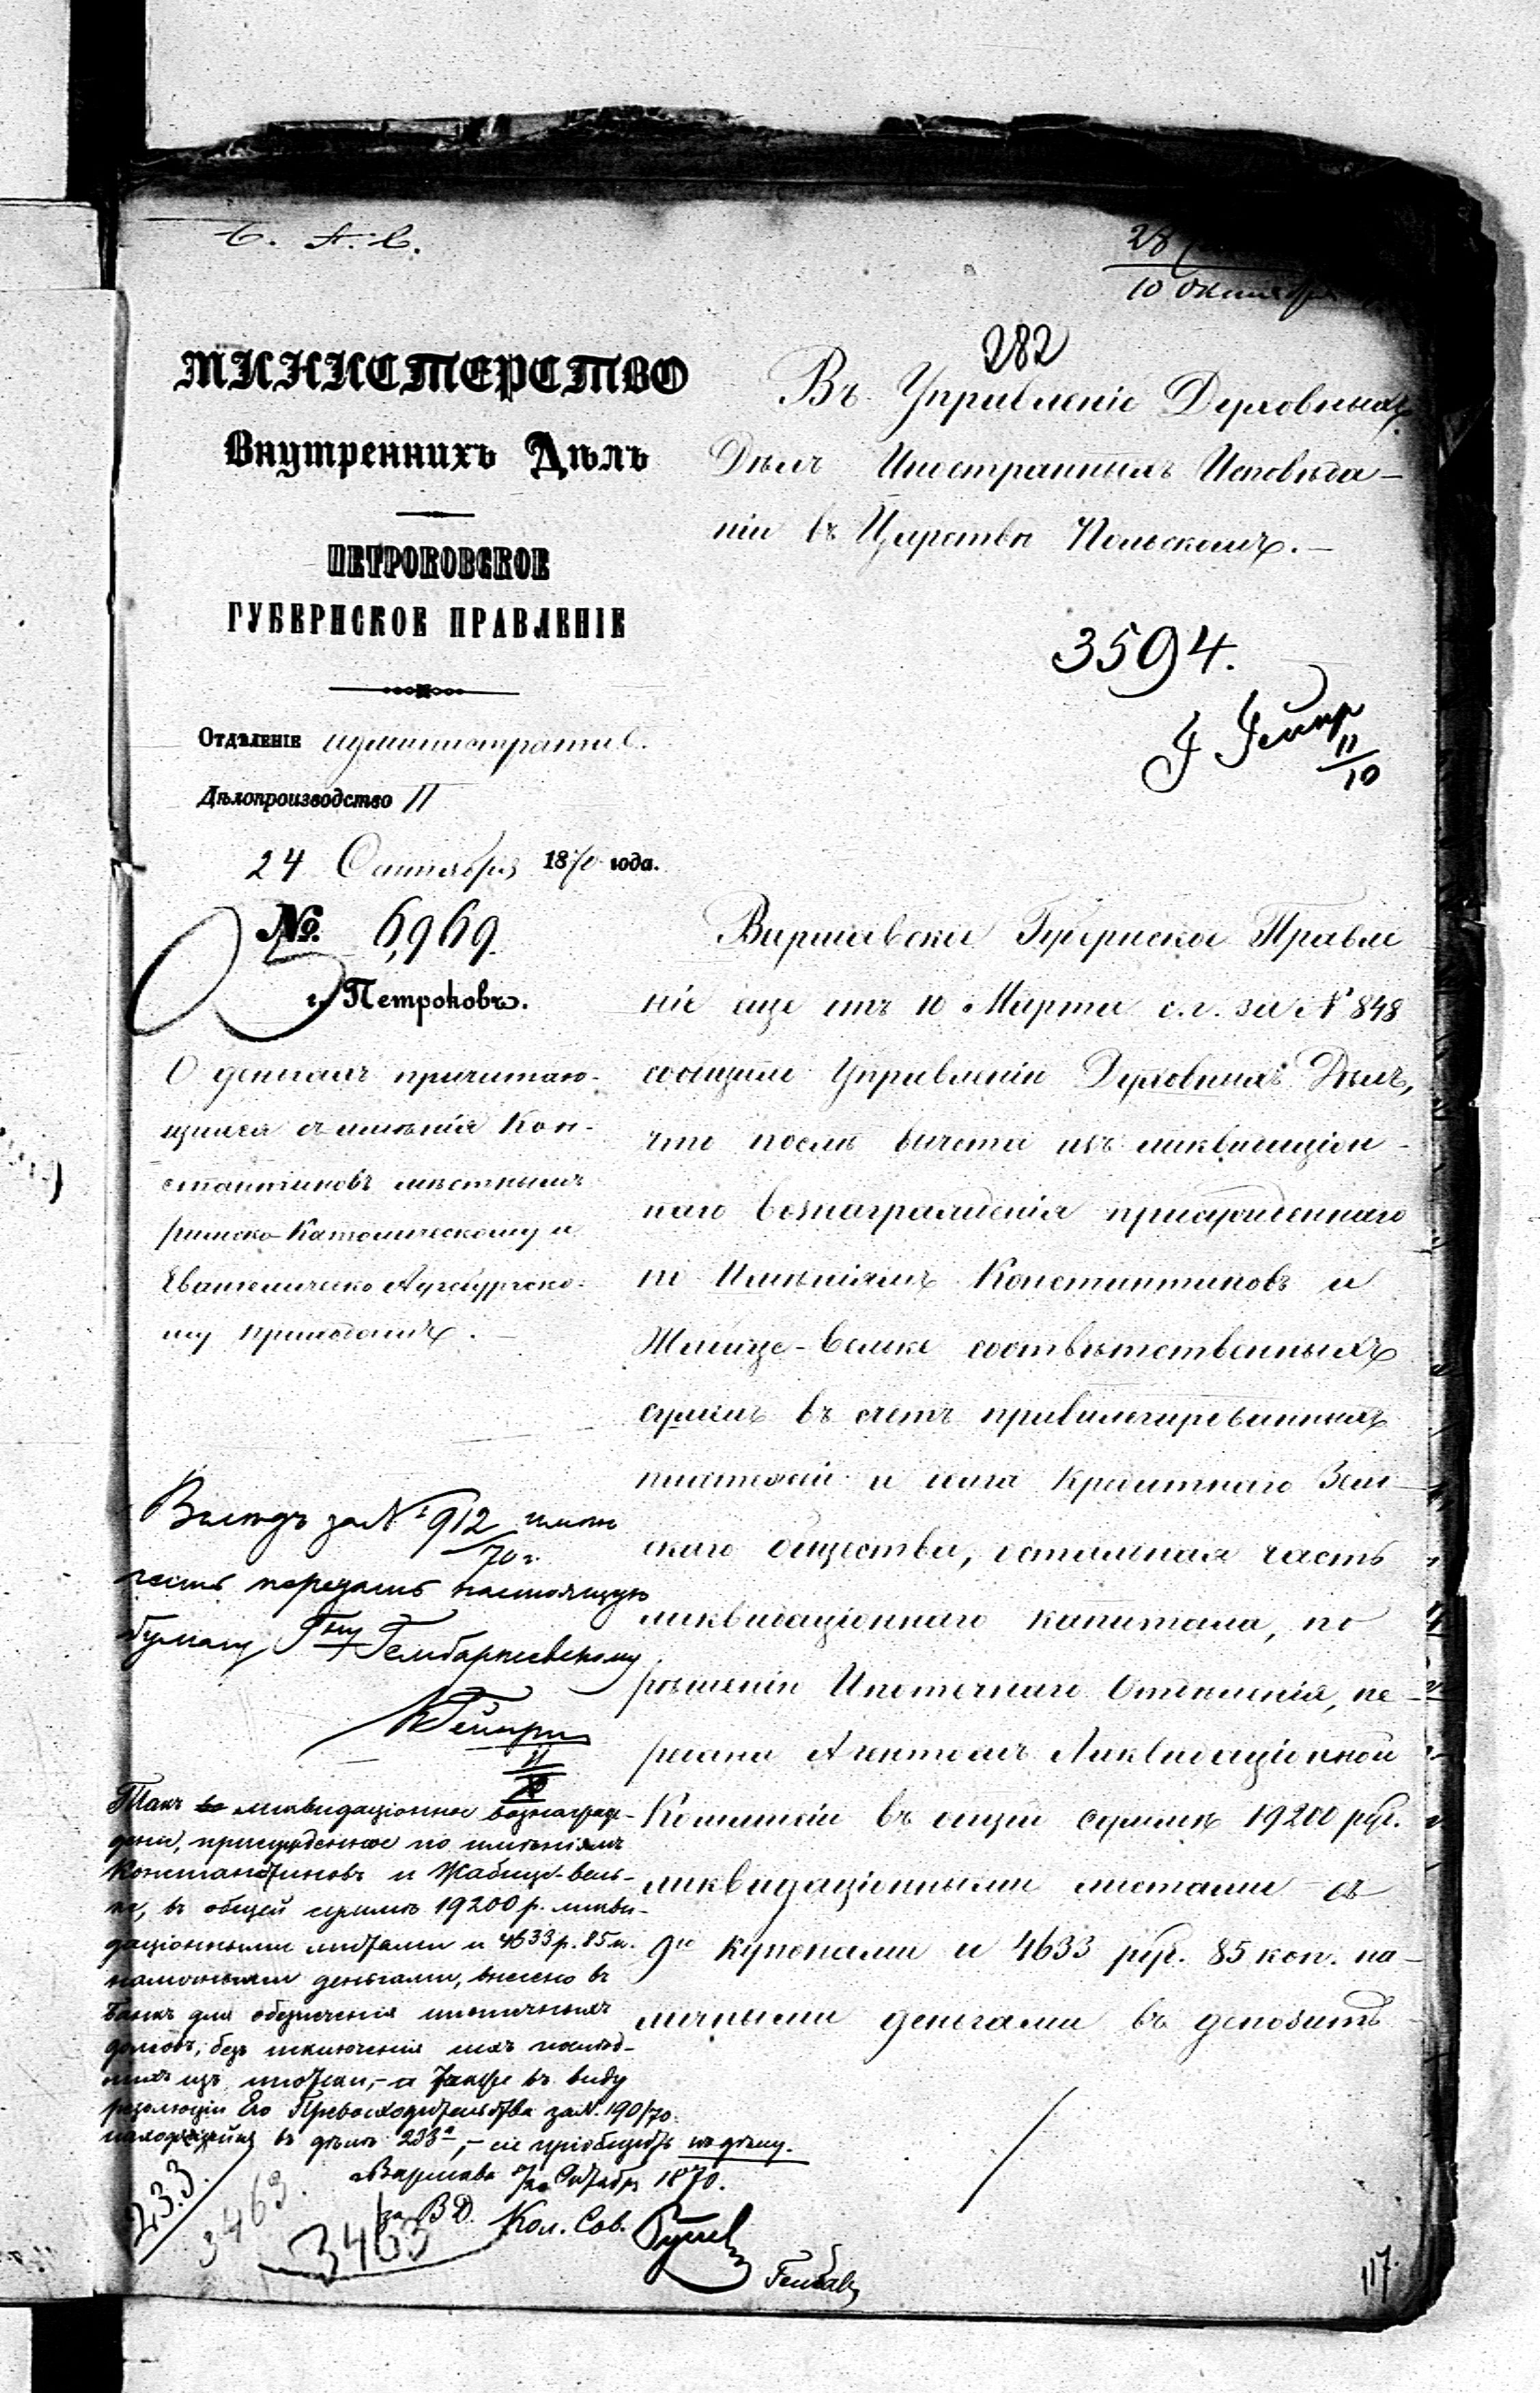 С. А. С.
28
10 Октября
282
МИНИСТЕРСТВО
Внутреннихъ Дѣлъ
ПЕТРОКОВСКОЕ
ГУБЕРНСКОЕ ПРАВЛЕНІЕ
Отдѣленіе административ.
Дѣлопроизводство II
24 Сентября 1870 года.
№ 6969
г. Петроковъ.
О деньгахъ причитаю-
щихся съ имѣнія Кон-
стантиновъ мѣстнымъ
римско-Католическому и
Евангелическо Аугсбургско-
му приходамъ.
Въ Управленіе Духовныхъ
Дѣлъ Иностранныхъ Исповѣда-
ній въ Царствѣ Польскомъ.
3594.
Г. Гейнр
11
10
Варшавское Губернское Правле
ніе еще отъ 10 Марта с. г. за № 848
сообщило Управленію Духовныхъ Дѣлъ,
что послѣ вычета изъ ликвидаціон-
наго вознагражденія присужденнаго
по Имѣніямъ Константиновъ и
Жабице-Велике соотвѣтственныхъ
суммъ въ счетъ привилегированныхъ
платежей и долга Кредитнаго Зем-
скаго общества, остальная часть
ликвидаціоннаго капитала, по
рѣшенію Ипотечнаго Отдѣленія, пе-
редана Агентомъ Ликвидаціонной
Коммисіи въ общей суммѣ 19200 руб.
ликвидаціонными листами съ
9ю купонами и 4633 руб. 85 коп. на-
личными деньгами въ депозитъ
за № 912
70 г.
передать настоящую
бумагу Гну Гембаржевскому
11
Такъ ликвидаціонное вознаграж-
деніе, присужденное по имѣніямъ
Константиновъ и Жабице-вель-
ке, въ общей суммѣ 19200 р. ликви-
даціонными листами и 4633 р. 85 к.
наличными деньгами, внесено въ
Банкъ для обезпеченія ипотечныхъ
долговъ, безъ исключенія ихъ послѣд-
нихъ изъ ипотеки, - а также въ виду
резолюціи Его Превосходительства за №. 190/70.
находящейся въ дѣлѣ 233а, - сіе пріобщить къ дѣлу.
Варшава Октября 1870.
за В Д. Кол. Сов.
233.
3463.
3463
117.